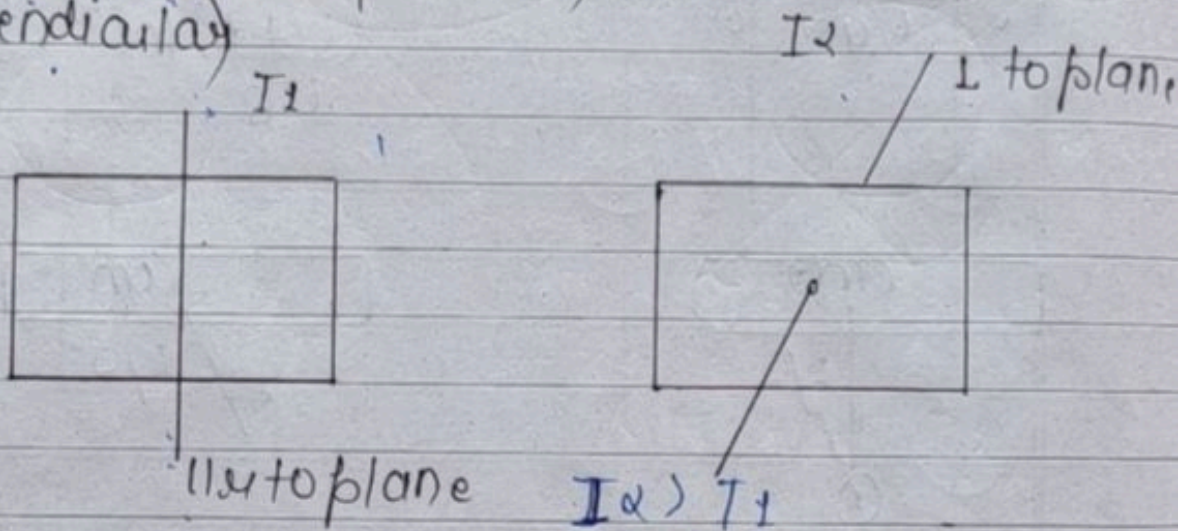 endicular)
I1
I2
⊥ to plane
11er to plane
I2 > I1